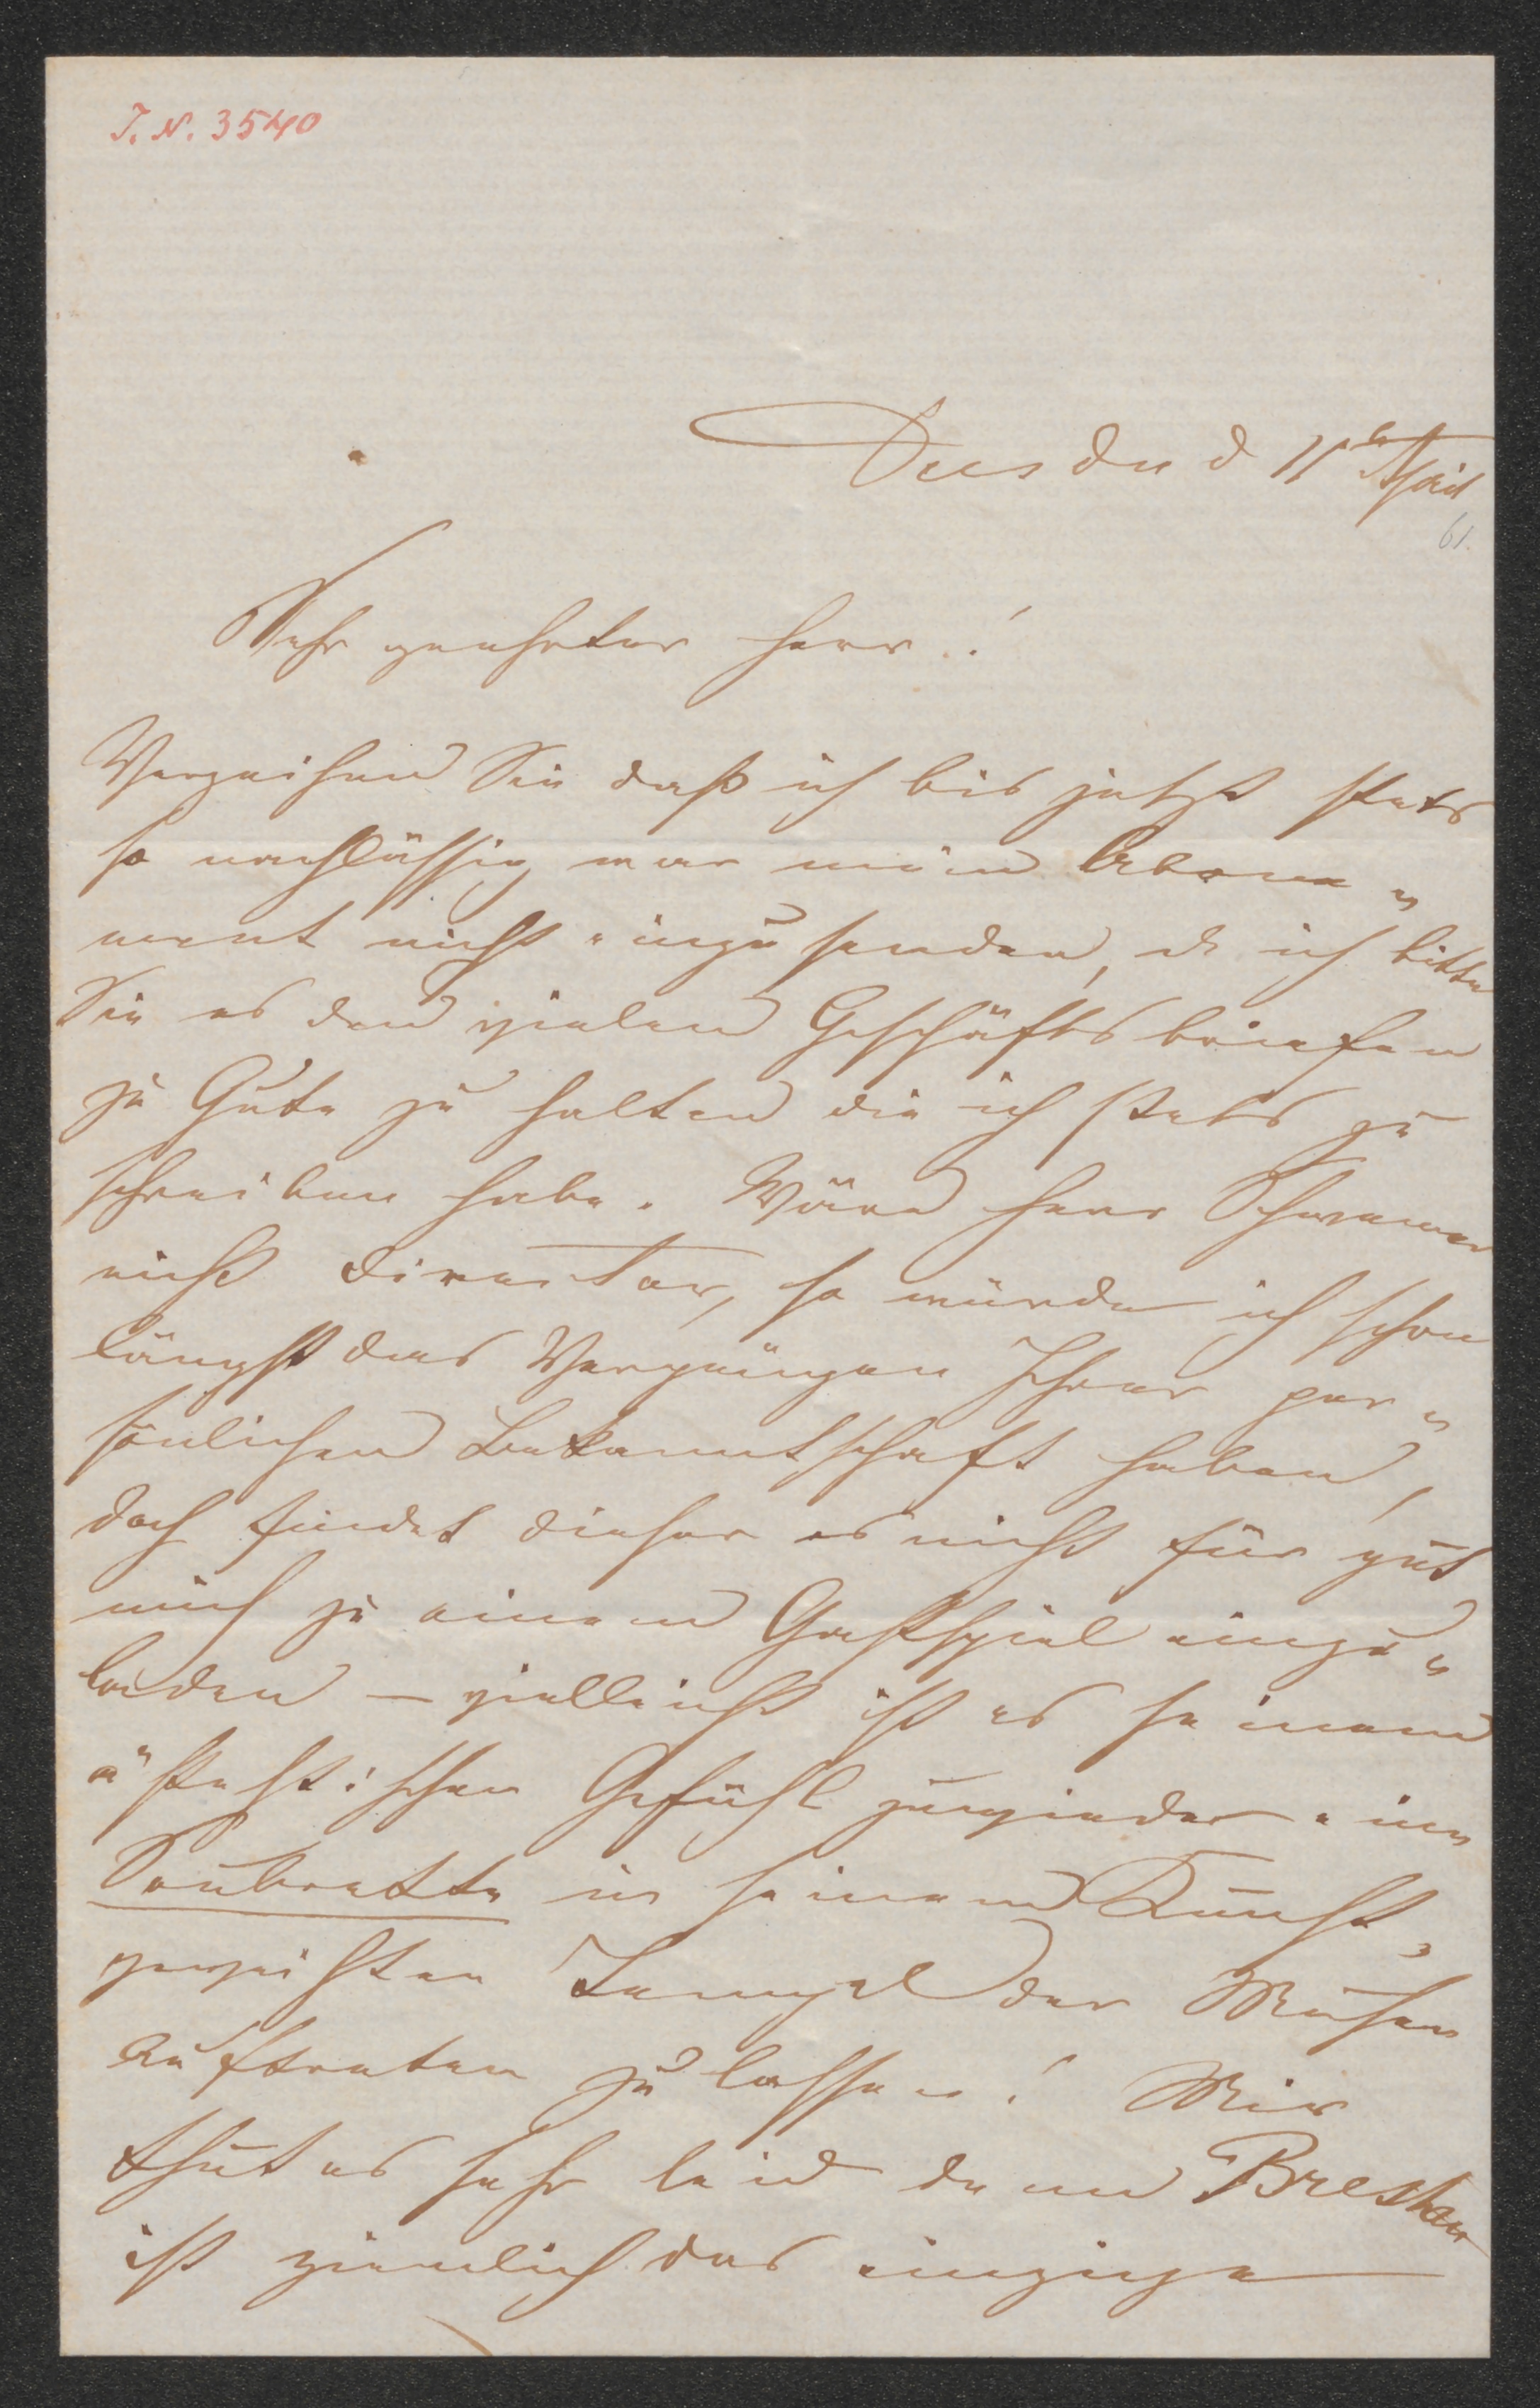 I. N. 3540
Dresden d 11t April
61.
Sehr geehrter Herr!
Verzeihen Sie daß ich bis jetzt stets
so nachlässig war mein Abonne„
ment nicht einzusenden, & ich bitte
Sie es den vielen Geschäftsbriefen
zu Gute zu halten die ich stets zu
schreiben habe. Wäre Herr Schwemer
nicht Director, so würde ich schon
längst das Vergnügen Ihrer per„
sönlichen Bekanntschaft haben,
doch findet dieser es nicht für gut
mich zu einem Gastspiel einzu„
laden – vielleicht ist es seinem
ästehtischen Gefühl zuwieder eine
Soubrette in seinem Kunst„
geweihten Tempel der Musen
auftreten zu lassen! Mir
thut es sehr leid denn Breslau
ist ziemlich das einzige